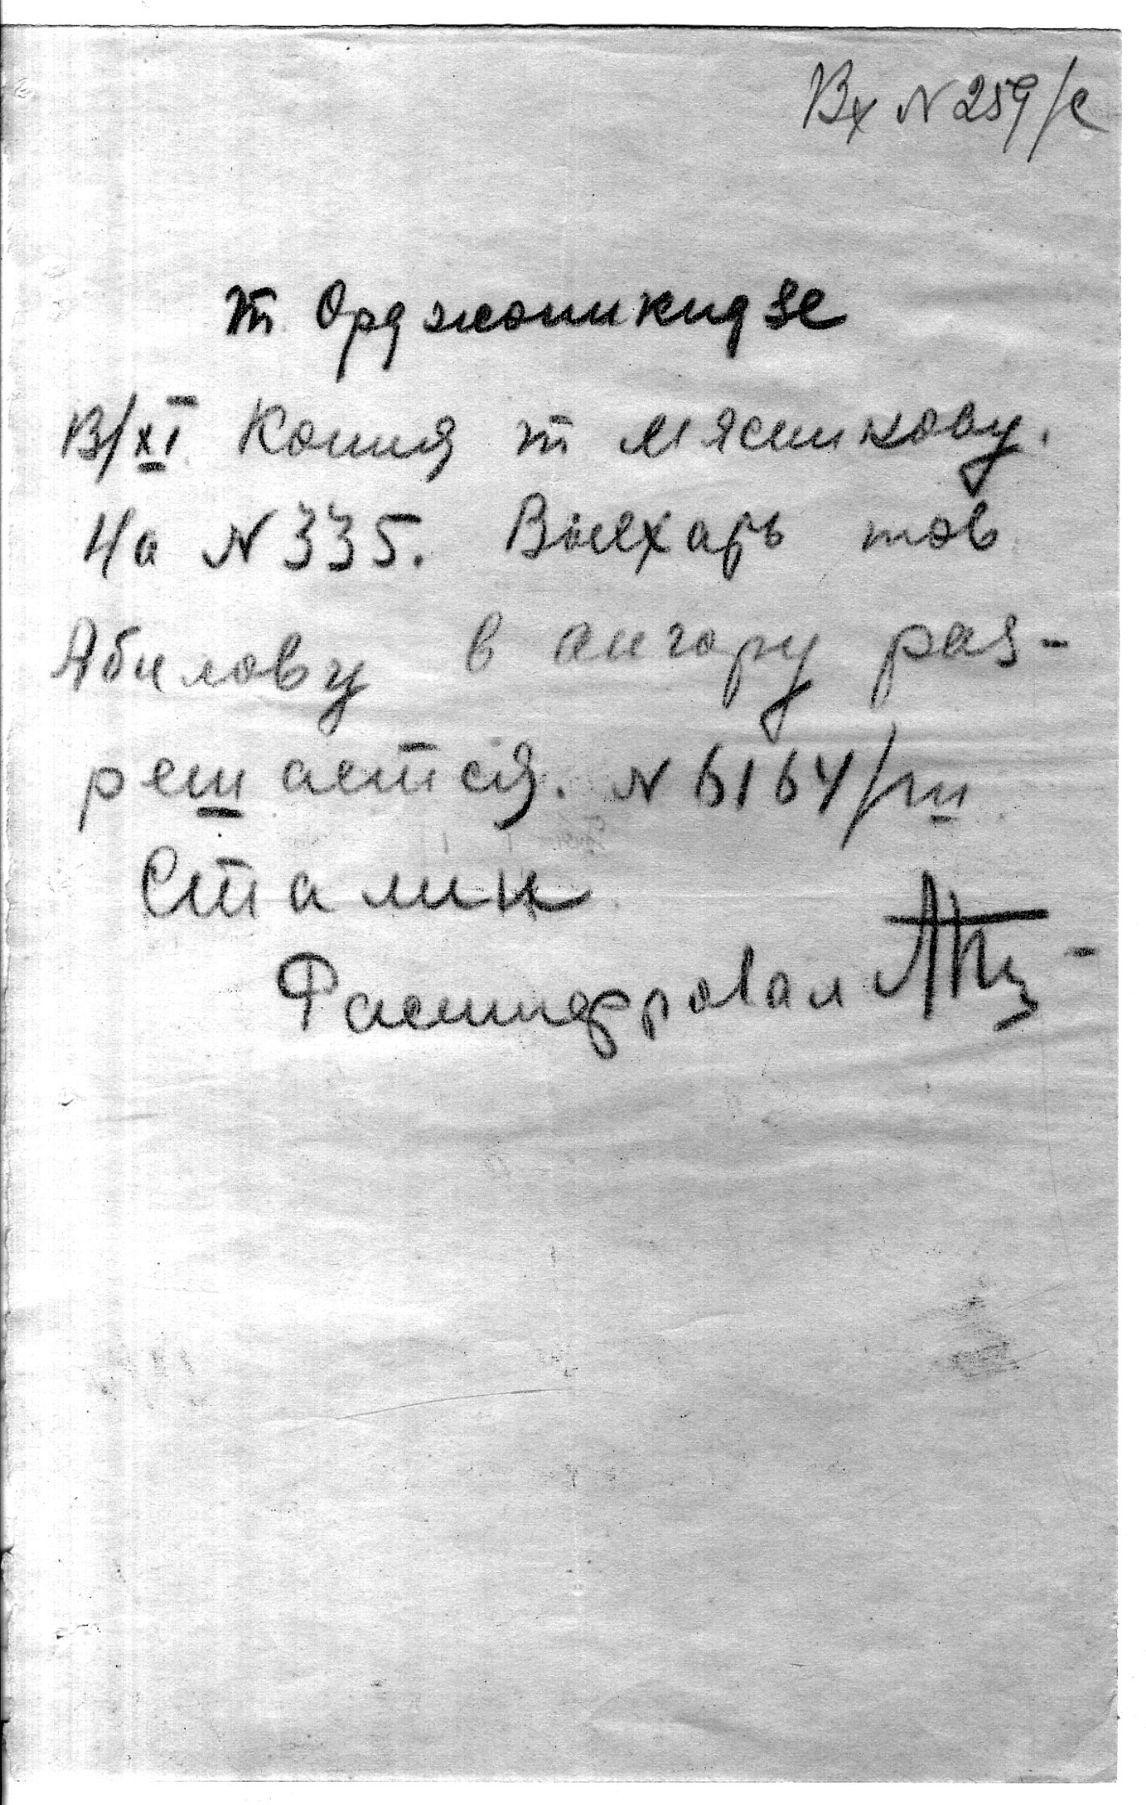 Вх N 259/с
т. Орджоникидзе
В/XI Копия т Мясникову.
На N 335. Выехать тов
Абилову в ангору раз-
решается. N 6164/ш
Сталин
Расшифровал